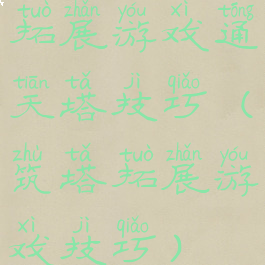 tuò zhǎn yóu xì tōng
拓展游戏通
tiān tǎ jì qiǎo
天塔技巧（
zhù tǎ tuò zhǎn yóu
筑塔拓展游
xì jì qiǎo
戏技巧）